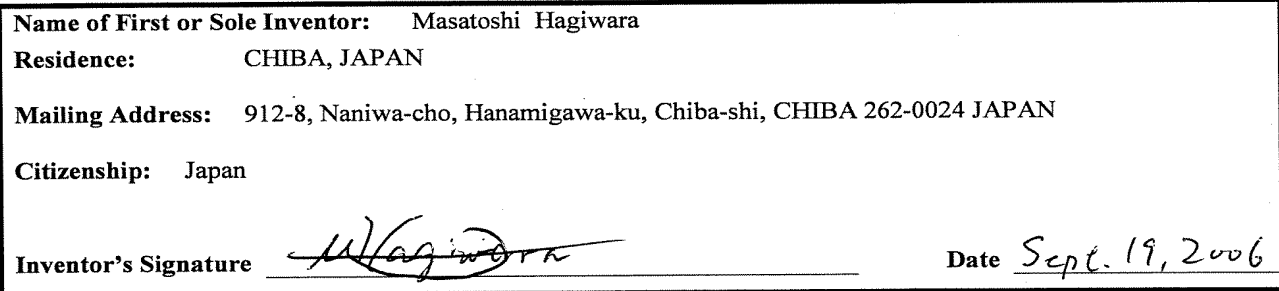 Name of First or Sole Inventor: Masatoshi Hagiwara
Residence: CHIBA, JAPAN
Mailing Address: 912-8, Naniwa-cho, Hanamigawa-ku, Chiba-shi, CHIBA 262-0024 JAPAN
Citizenship: Japan
Inventor's Signature M Hagiwara Date Sept. 19, 2006